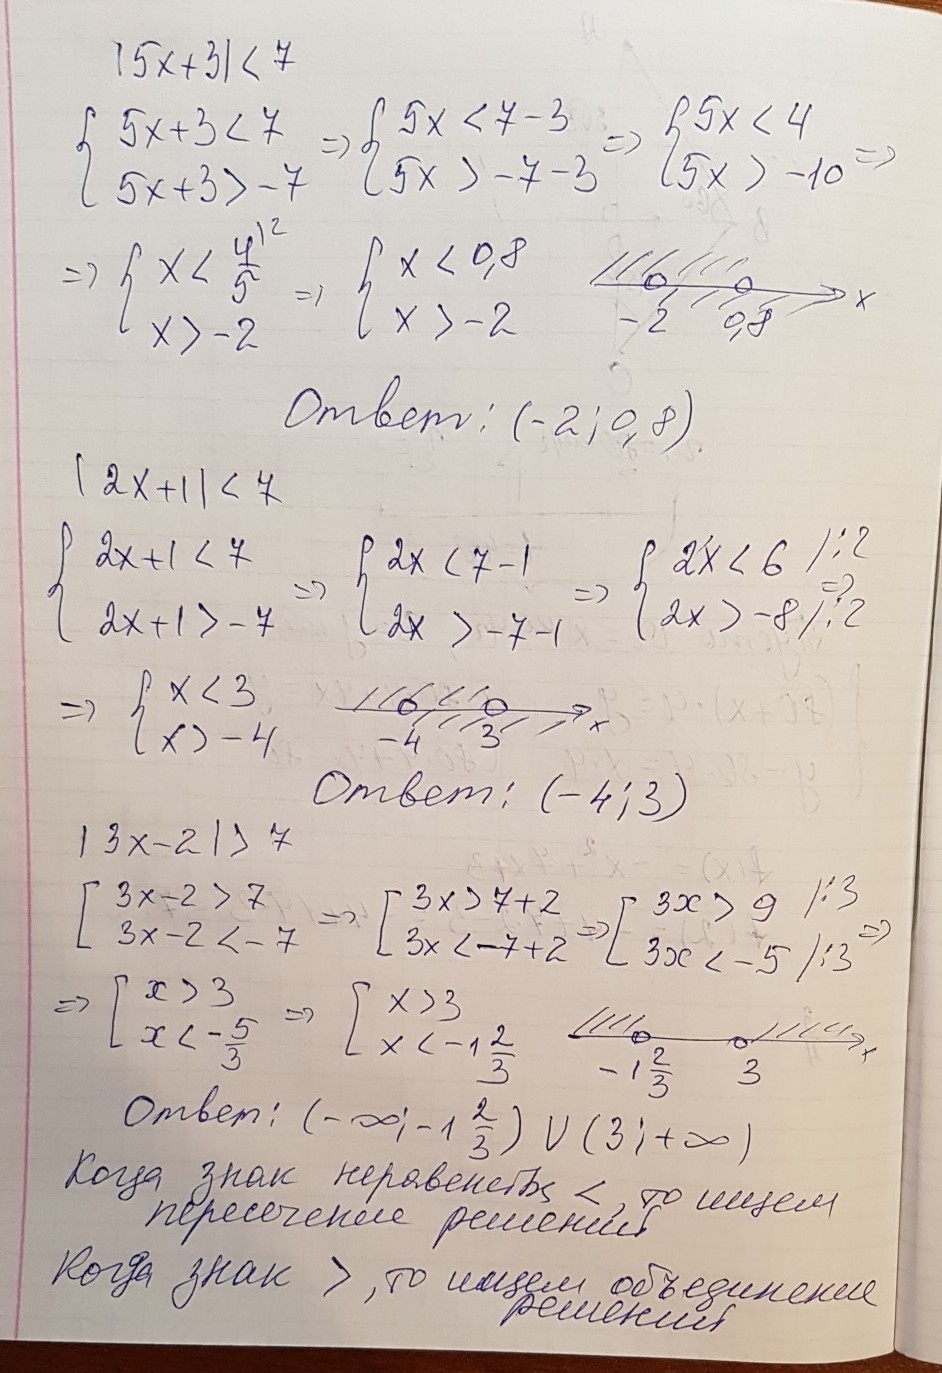 |5x+3| < 7
{ 5x+3 < 7 => { 5x < 7-3 => { 5x < 4 =>
{ 5x+3 > -7 { 5x > -7-3 { 5x > -10
=> { x < 4/5 |2 => { x < 0,8
{ x > -2 { x > -2 -2 0,8 x
Ответ: (-2; 0,8)
|2x+1| < 7
{ 2x+1 < 7 => { 2x < 7-1 => { 2x < 6 /:2 =>
{ 2x+1 > -7 { 2x > -7-1 { 2x > -8 /:2
=> { x < 3
{ x > -4 -4 3 x
Ответ: (-4; 3)
|3x-2| > 7
[ 3x-2 > 7 => [ 3x > 7+2 => [ 3x > 9 /:3 =>
[ 3x-2 < -7 [ 3x < -7+2 [ 3x < -5 /:3
=> [ x > 3 => [ x > 3
[ x < -5/3 [ x < -1 2/3 -1 2/3 3 x
Ответ: (-∞; -1 2/3) U (3; +∞)
Когда знак неравенств <, то ищем
пересечение решений
Когда знак >, то ищем объединение
решений